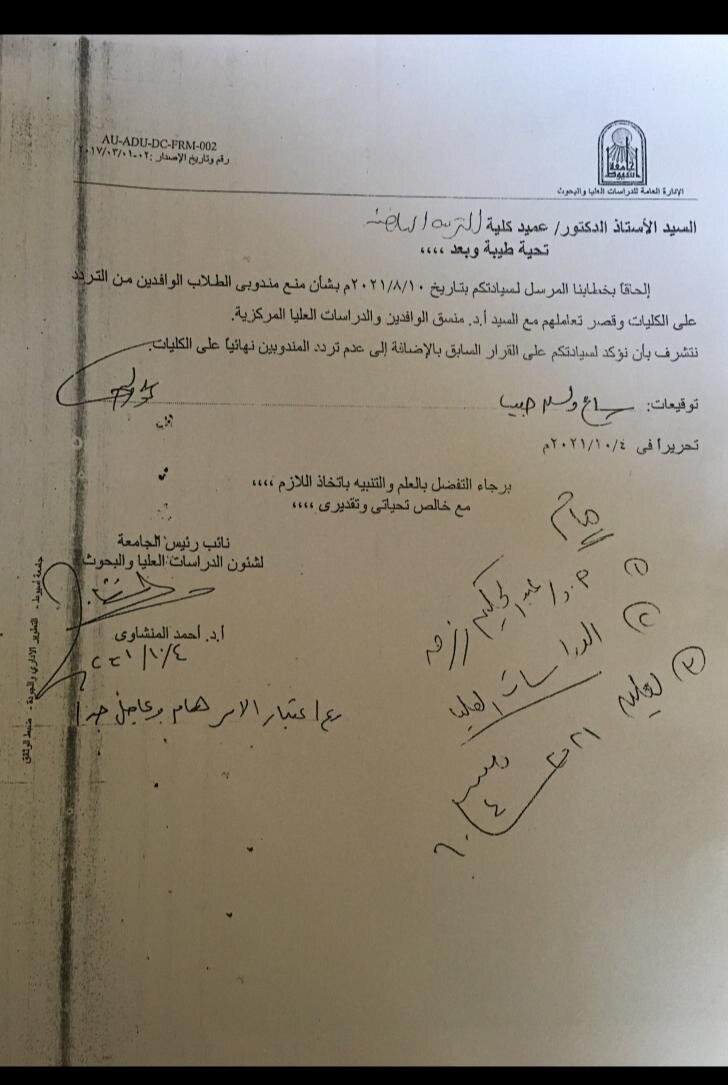 AU-ADU-DC-FRM-002
رقم وتاريخ الإصدار :٠٢-٢٠١٧/٠٣/٠١
جامعة أسيوط
الإدارة العامة للدراسات العليا والبحوث
السيد الأستاذ الدكتور/ عميد كلية التربية الرياضية
تحية طيبة وبعد ،،،،
إلحاقاً بخطابنا المرسل لسيادتكم بتاريخ ٢٠٢١/٨/١٠م بشأن منع مندوبى الطلاب الوافدين من التردد
على الكليات وقصر تعاملهم مع السيد أ.د. منسق الوافدين والدراسات العليا المركزية.
نتشرف بأن نؤكد لسيادتكم على القرار السابق بالإضافة إلى عدم تردد المندوبين نهائياً على الكليات.
توقيعات:
تحريراً فى ٢٠٢١/١٠/٤م
برجاء التفضل بالعلم والتنبيه باتخاذ اللازم ،،،،
مع خالص تحياتى وتقديرى ،،،،
نائب رئيس الجامعة
لشئون الدراسات العليا والبحوث
أ.د. أحمد المنشاوى
٢٠٢١/١٠/٤
مع اعتبار الامر هام وعاجل جدا
هام
١
٢ الدراسات العليا
٣
جامعة أسيوط - التطوير الادارى والجودة - ضبط الوثائق